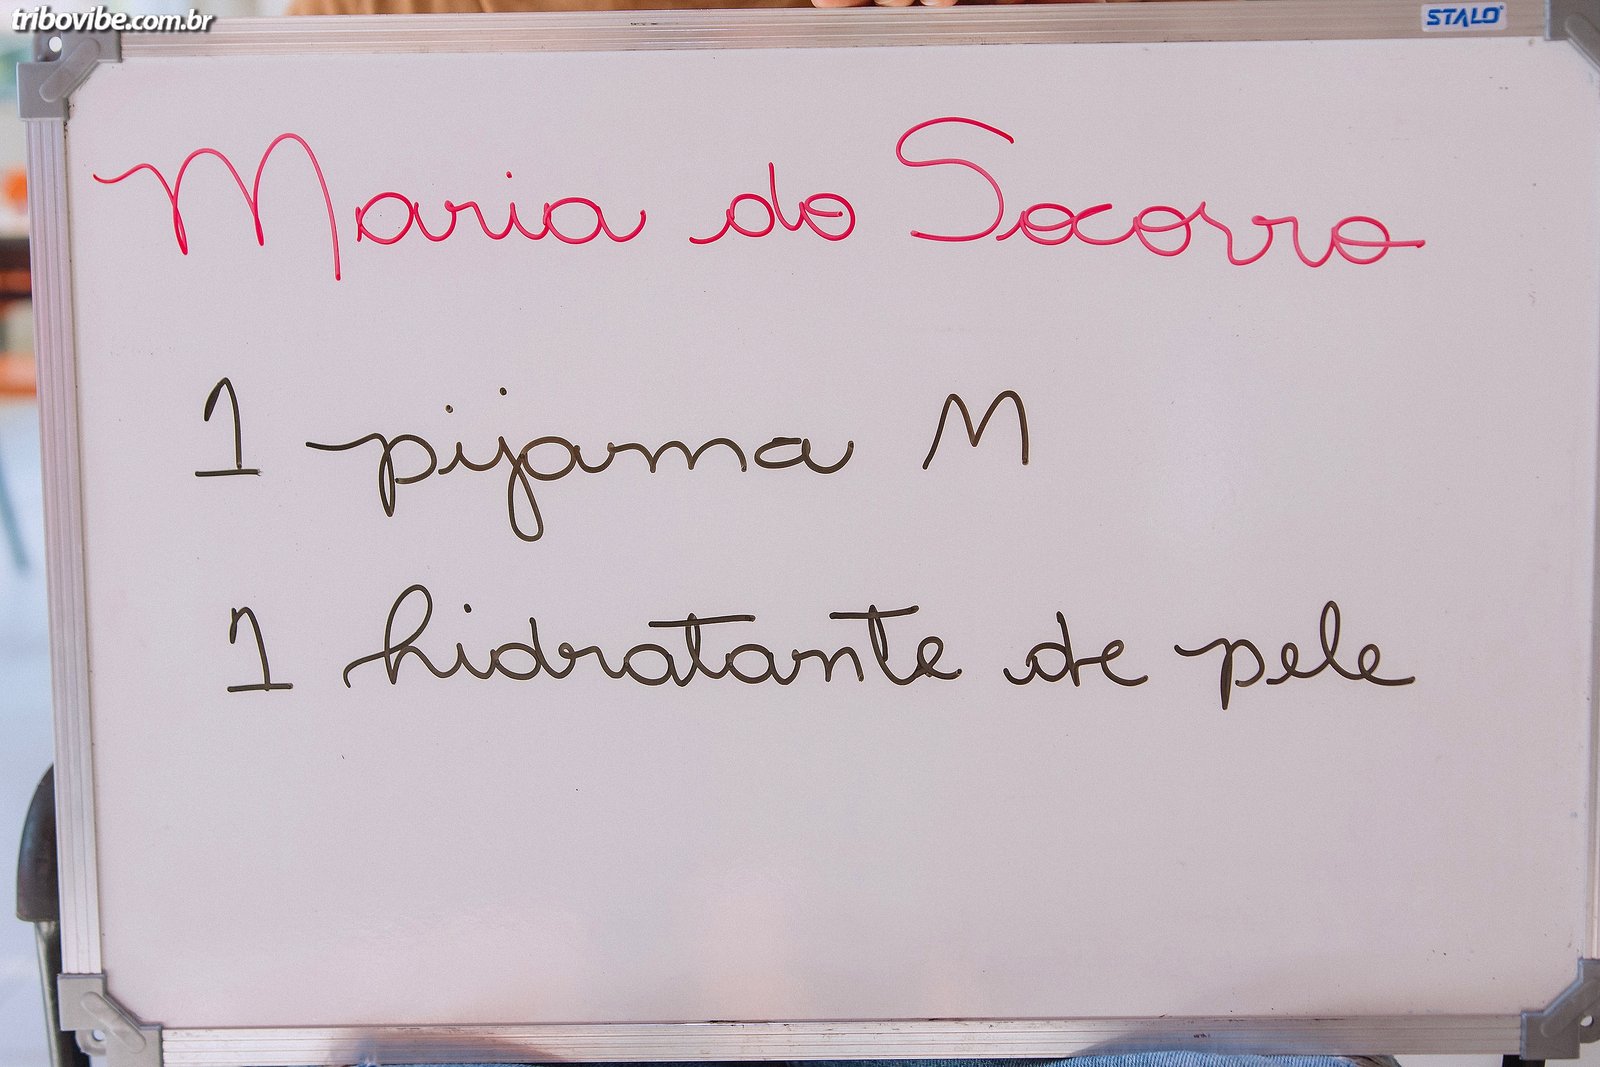 tribovibe.com.br
STALO
Maria do Socorro
1 pijama M
1 hidratante de pele